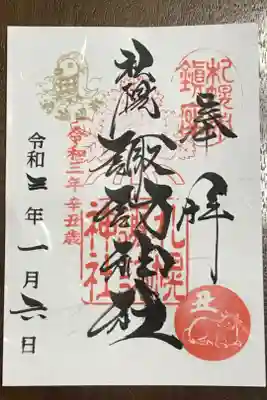 奉拝
札幌
諏訪神社
札幌
諏訪
神社
令和三年 辛丑歳
令和三年一月六日
丑